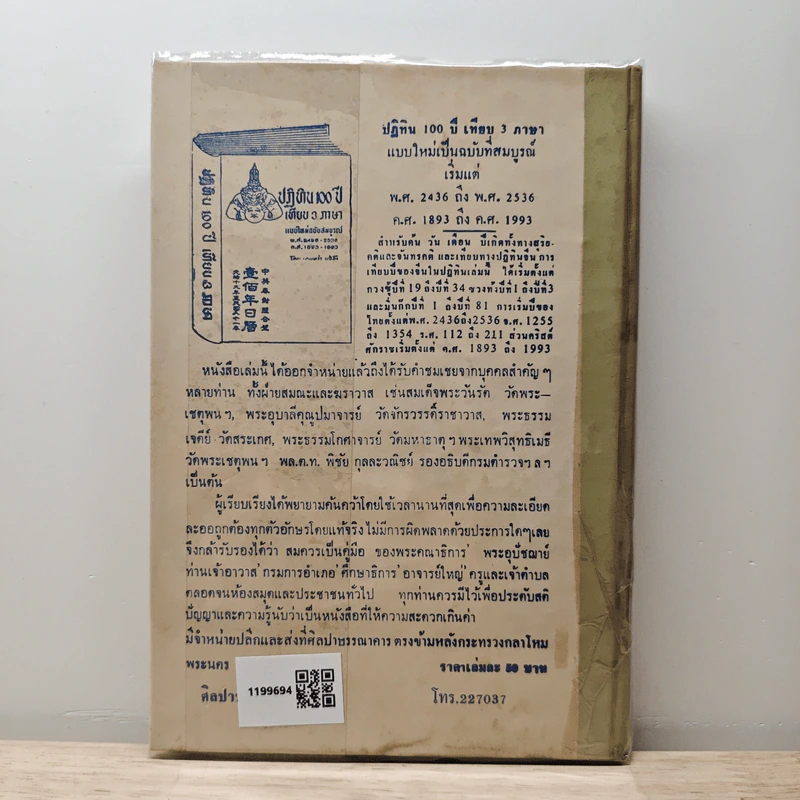 ปฏิทิน 100 ปี เทียบ 3 ภาษา
แบบใหม่เป็นฉบับที่สมบูรณ์
เริ่มแต่
พ.ศ. 2436 ถึง พ.ศ. 2536
ค.ศ. 1893 ถึง ค.ศ. 1993
สำหรับค้น วัน เดือน ปีเกิดทั้งทางสุริย-
คติและจันทรคติ และเทียบทางปฏิทินจีน การ
เทียบปีของจีนในปฏิทินเล่มนี้ ได้เริ่มตั้งแต่
กวงซู้ปีที่ 19 ถึงปีที่ 34 ซวงท้งปีที่ 1 ถึงปีที่3
และมิ่นก๊กปีที่ 1 ถึงปีที่ 81 การเริ่มปีของ
ไทยตั้งแต่พ.ศ. 2436ถึง2536 จ.ศ. 1255
ถึง 1354 ร.ศ. 112 ถึง 211 ส่วนคริสต์
ศักราชเริ่มตั้งแต่ ค.ศ. 1893 ถึง 1993
ปฏิทิน 100 ปี เทียบ 3 ภาษา
ปฏิทิน 100 ปี
เทียบ 3 ภาษา
แบบใหม่ฉบับสมบูรณ์
พ.ศ. 2436 - 2536
ค.ศ. 1893 - 1993
壹佰年日曆
หนังสือเล่มนี้ ได้ออกจำหน่ายแล้วถึงได้รับคำชมเชยจากบุคคลสำคัญ ๆ
หลายท่าน ทั้งฝ่ายสมณะและฆราวาส เช่นสมเด็จพระวันรัต วัดพระ–
เชตุพน ฯ, พระอุบาลีคุณูปมาจารย์ วัดจักรวรรดิ์ราชาวาส, พระธรรม
เจดีย์ วัดสระเกศ, พระธรรมโกศาจารย์ วัดมหาธาตุ ฯ พระเทพวิสุทธิเมธี
วัดพระเชตุพน ฯ พล.ต.ท. พิชัย กุลละวณิชย์ รองอธิบดีกรมตำรวจ ฯ ล ฯ
เป็นต้น
ผู้เรียบเรียงได้พยายามค้นคว้าโดยใช้เวลานานที่สุดเพื่อความละเอียด
ละออถูกต้องทุกตัวอักษรโดยแท้จริง ไม่มีการผิดพลาดด้วยประการใดๆเลย
จึงกล้ารับรองได้ว่า สมควรเป็นคู่มือ ของพระคณาธิการ พระอุปัชฌาย์
ท่านเจ้าอาวาส กรมการอำเภอ ศึกษาธิการ อาจารย์ใหญ่ ครูและเจ้าตำบล
ตลอดจนห้องสมุดและประชาชนทั่วไป ทุกท่านควรมีไว้เพื่อประดับสติ
ปัญญาและความรู้นับว่าเป็นหนังสือที่ให้ความสะดวกเกินค่า
มีจำหน่ายปลีกและส่งที่ศิลปาบรรณาคาร ตรงข้ามหลังกระทรวงกลาโหม
พระนคร ราคาเล่มละ 50 บาท
1199694
ศิลปา โทร.227037